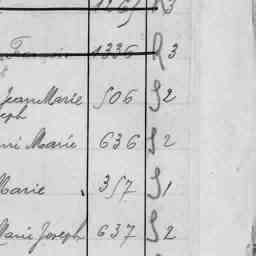 1267 R3
François 1336 R 3
Jean Marie 506 S 2
seph
ni Marie 636 S 2
Marie 357 S 1
Marie Joseph 637 S 2